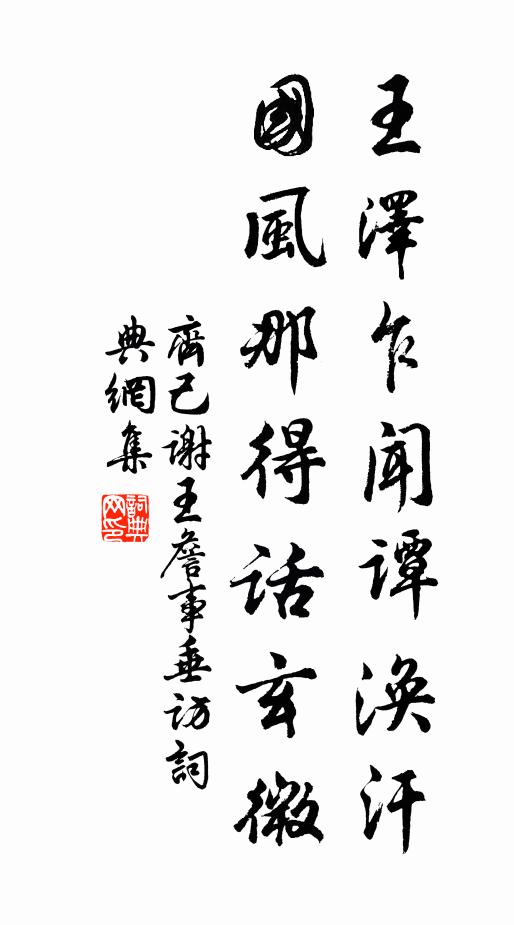 王澤乍聞譚渙汗
國風那得話玄微
齊己謝王詹事垂訪詞
典網集
詞典网印